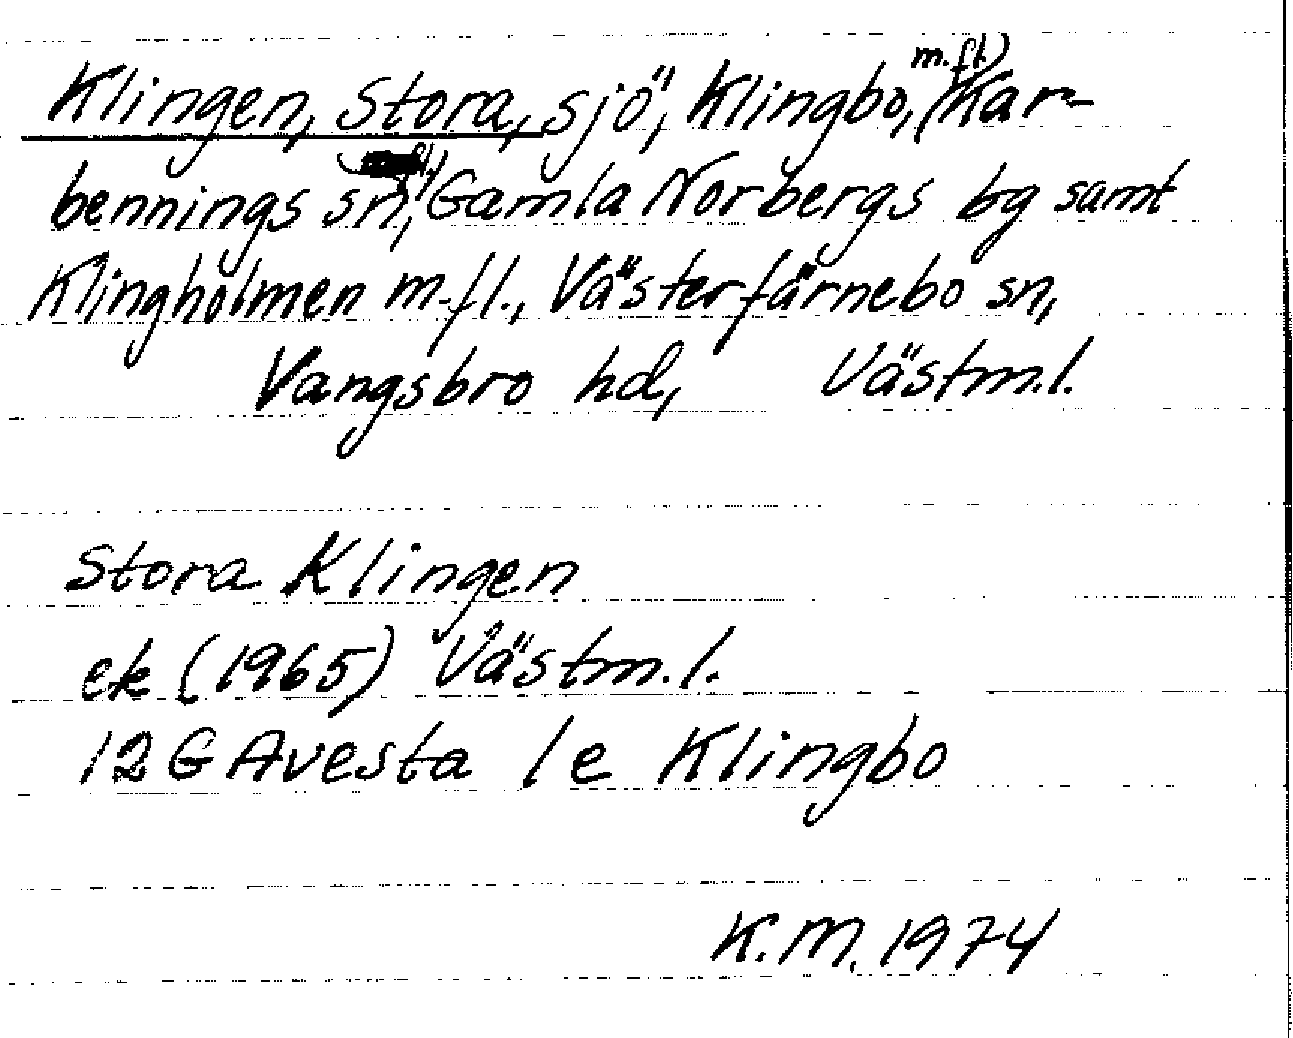 Klingen, Stora, sjö, Klingbo, m.fl.) Kar-
bennings sn, Gamla Norbergs bg samt
Klingholmen m.fl., Västerfärnebo sn,
Vangsbro hd, Västm.l.
Stora Klingen
ek (1965) Västm.l.
12G Avesta 1e Klingbo
K.M. 1974